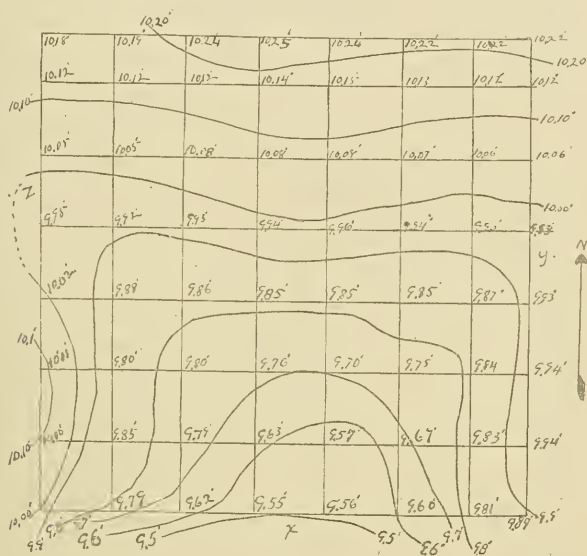 10.20'
10.18' 10.19' 10.24 10.25' 10.24' 10.22' 10.22' 10.22'
10.20
10.12' 10.12' 10.12' 10.14' 10.15' 10.13 10.12' 10.12'
10.10'
10.10'
10.05' 10.05' 10.08' 10.08' 10.08' 10.07' 10.06' 10.06'
Z
10.00'
9.95' 9.92' 9.95' 9.94' 9.96' 9.94' 9.95' 9.93'
y. N
10.02' 9.88' 9.86 9.85' 9.85' 9.85' 9.87' 9.93'
10.1'
9.80' 9.80' 9.76' 9.70' 9.75' 9.84 9.94'
9.85' 9.79' 9.63' 9.57' 9.67' 9.83' 9.94'
10.10'
10.00'
9.79 9.62' 9.55' 9.56' 9.60' 9.81' 9.89'
9.9' 9.8' 9.7' 9.6' 9.5' x 9.5' 9.6' 9.7' 9.8' 9.9'